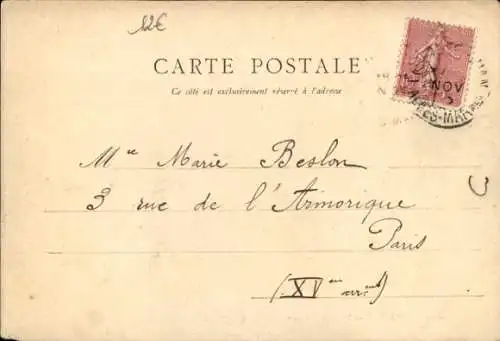 12€
CARTE POSTALE
Ce côté est exclusivement réservé à l'adresse
NOV
Mlle Marie Beslon
3 rue de l'Armorique
Paris
(XVem arrt)